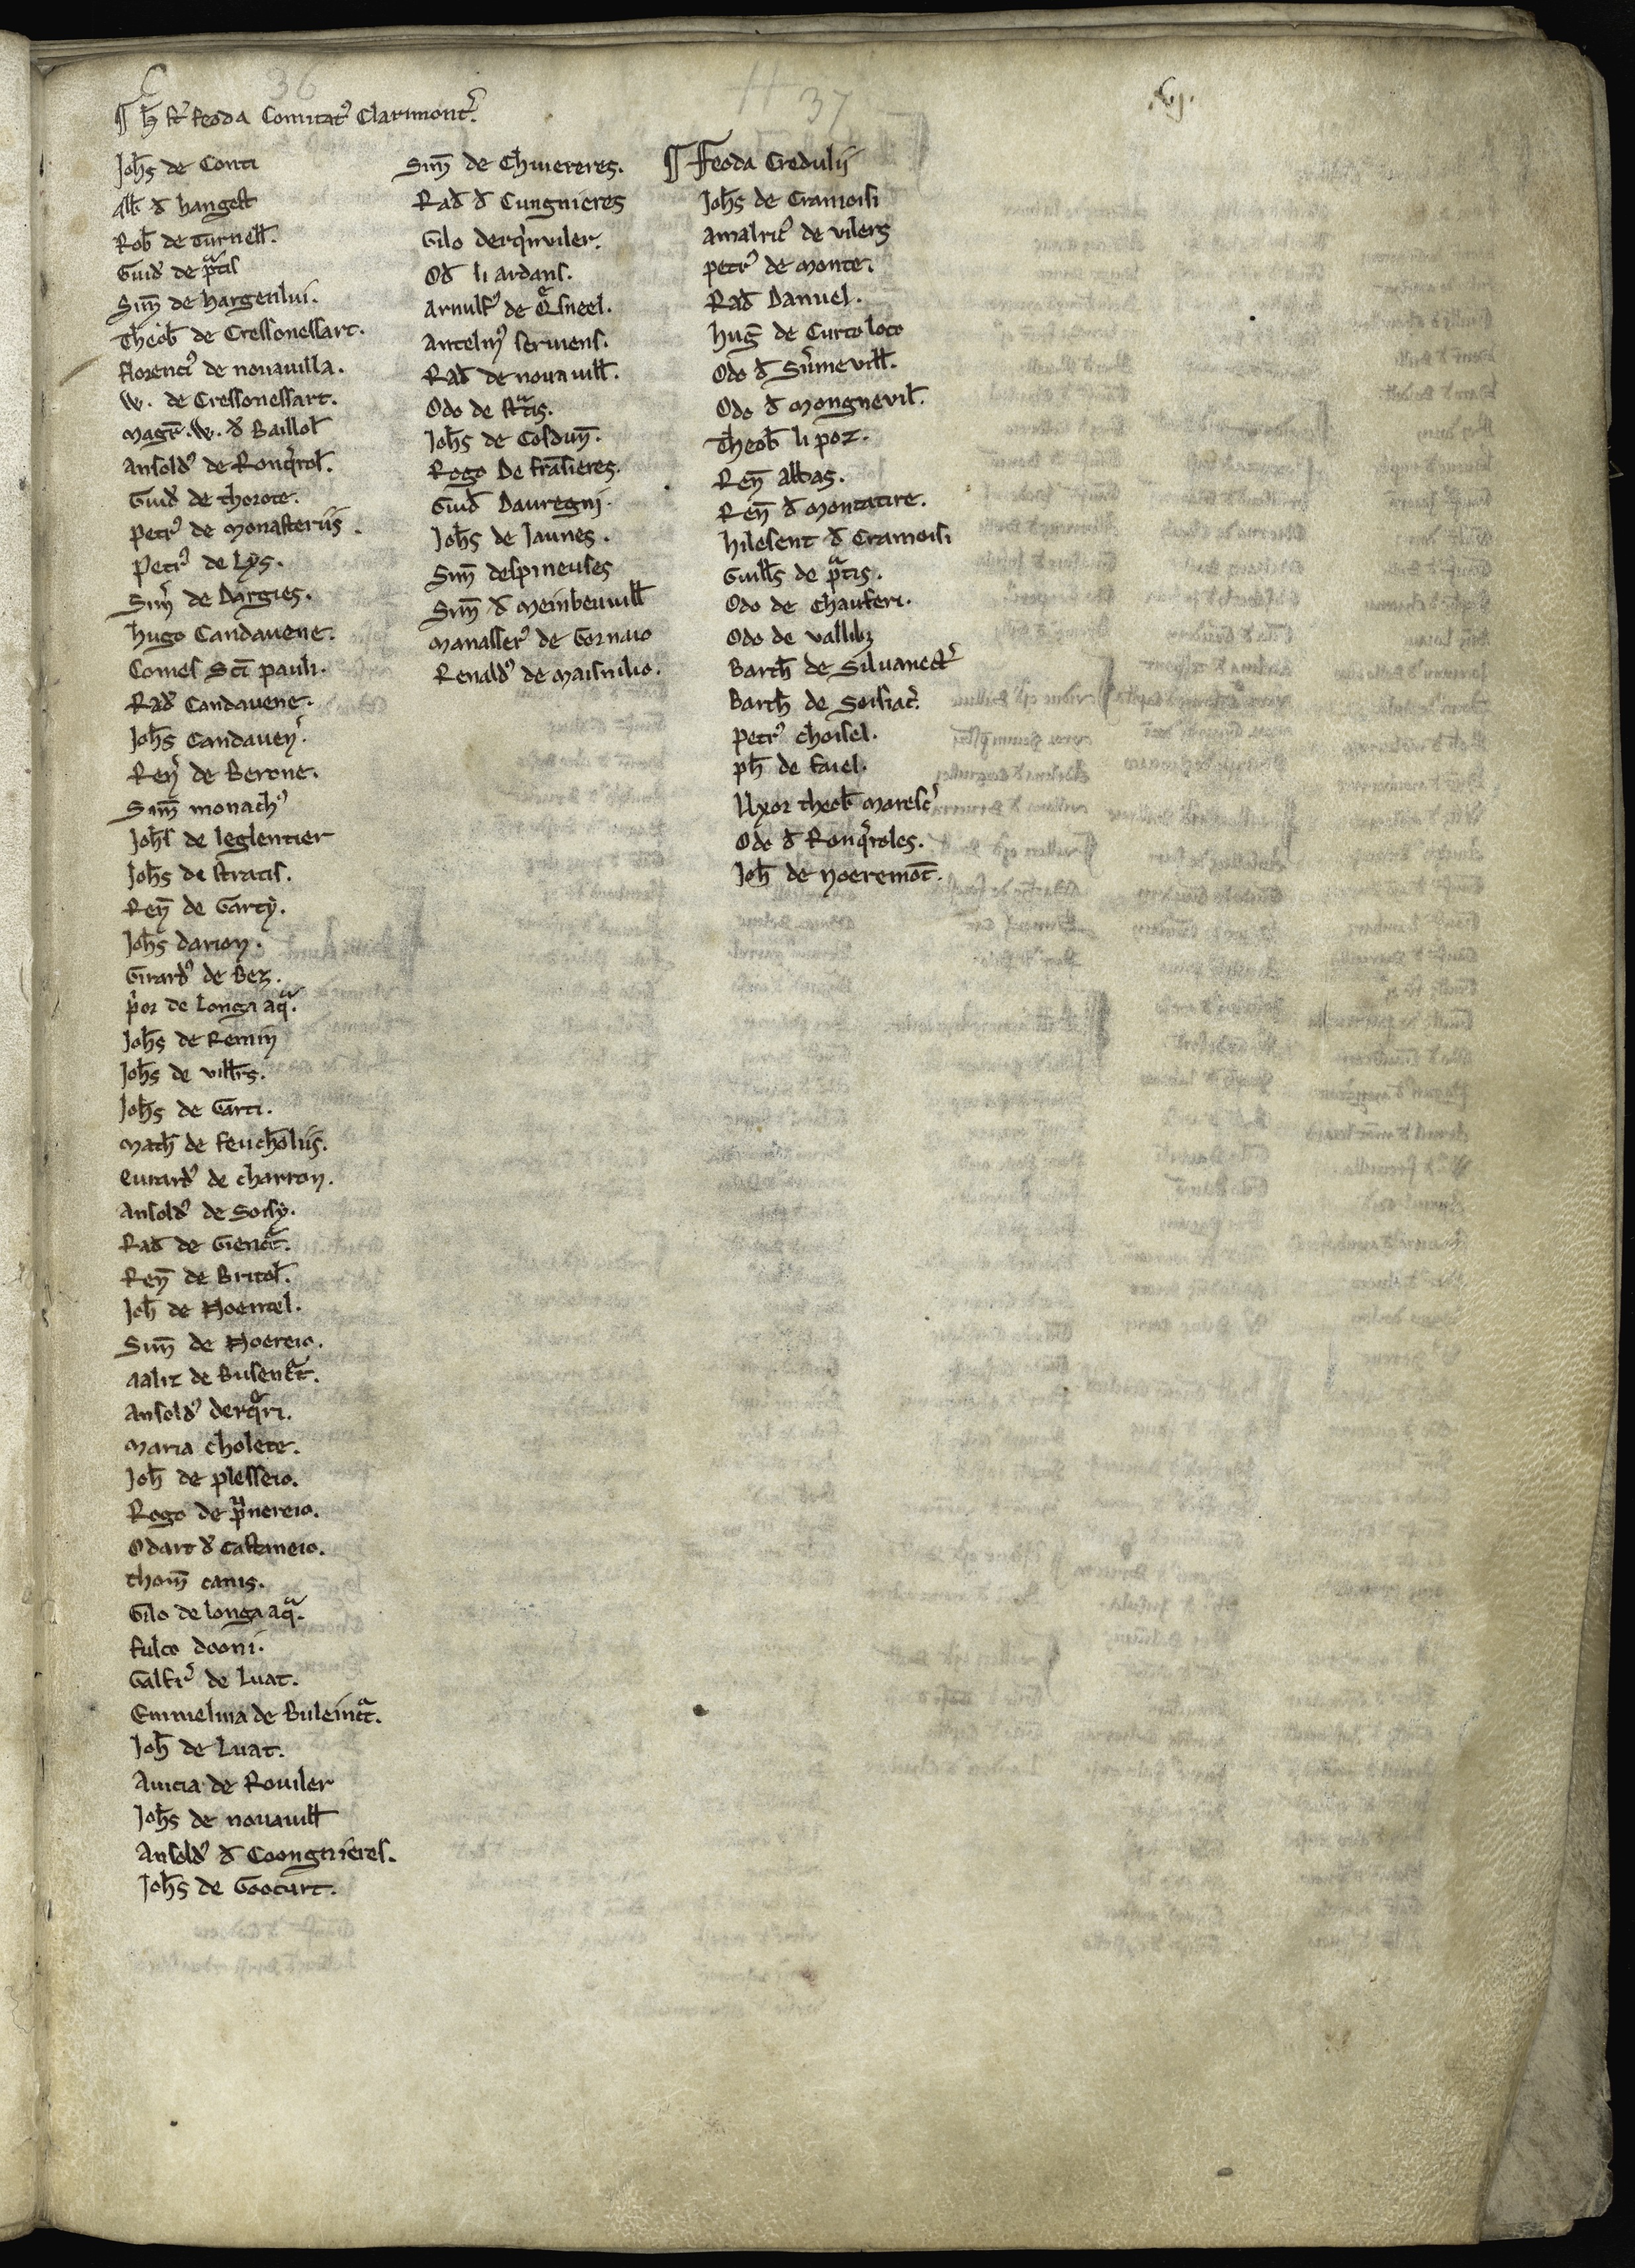 C 36 H 37 .vj.
¶ h̄ st̄ feoda Comitatꝰ Clarimont᷒.
Joh̄s de Conti
Alb̄ đ hangest
Rob̄ de turnell̄.
Guid᷒ de pᵃtis
Sim̄ de hargenlui.
Theob̄ de Cressonessart.
florencꝰ de nouauilla.
W. de Cressonessart.
Magr̄. W. đ Baillol̄
Ansoldꝰ de Ronq̓rol̄.
Guid᷒ de thorote.
Petrꝰ de Monasteriis.
Petrꝰ de Lys.
Sim᷒ de Dargies.
hugo Candauene.
Comes Sc̄i pauli.
Rad᷒ Candauene.
Joh̄s Candauen᷒.
Ren᷒ de Berone.
Sim̄ monachꝰ
Joh̄s de leglentier
Joh̄s de stratis.
Ren̄ de Garti.
Joh̄s darion.
Girardꝰ de Bez.
p̓or de Longa aqᵃ.
Joh̄s de Remin
Joh̄s de vill̄rs.
Joh̄s de Garti.
Math̄ de feucholiis.
eurardꝰ de charron.
Ansoldꝰ de Soisy.
Rad̄ de Gienctᵃ.
Ren̄ de Britol̄.
Joh̄ de Noentel.
Sim̄ de Noereio.
Aalit de Busenctᵃ.
Ansoldꝰ derqᵒri.
Maria cholete.
Joh̄ de plesseio.
Rogo de pᵘnereio.
Odart đ Castaneio.
thom̄ canis.
Gilo de longa aqᵃ.
fulco dooni.
Galfr᷒ de Luat.
Emmelina de Buleinctᵃ.
Joh̄ de Luat.
Auicia de Rouiler
Joh̄s de nouauill̄
Ansoldꝰ đ Coongnieres.
Joh̄s de Goocurt.
Sim̄ de Chiuereres.
Rad̄ đ Cungnieres
Gilo derq̓nuiler.
Od̄ li ardans.
Arnulfꝰ de Qᵃsneel.
Antelmꝰ seruiens.
Rad̄ de noua uill̄.
Odo de stᵃtis.
Joh̄s de Cosdun̄.
Rogo De fra᷒sieres.
Guid̄ Dauregni.
Joh̄s de Jaunes.
Sim̄ despineuses
Sim̄ đ Meinbeuuill̄
Manasserꝰ de Gornaio
Renaldꝰ de Maisnilio.
¶ Feoda Credulii
Joh̄s de Cramoisi
Amalricꝰ de vilers
Petrꝰ de Monte.
Rad̄ Danuel.
huḡ de Curto loco
Odo đ Su᷒meuill̄.
Odo đ Mongneuil̄.
Theob̄ li poz.
Ren̄ abbas.
Ren̄ đ Montatire.
hilesent đ Cramoisi
Guill̄s de pᵃtis.
Odo de Chauferi.
Odo de vallibꝫ
Barth̄ de Siluanect᷒
Barth̄ de Soisiac᷒.
Petrꝰ choisel.
ph̄ de faiel.
Uxor theob̄ Maresc᷒
Odo đ Ronq̓roles.
Joh̄ de Noeremōt.